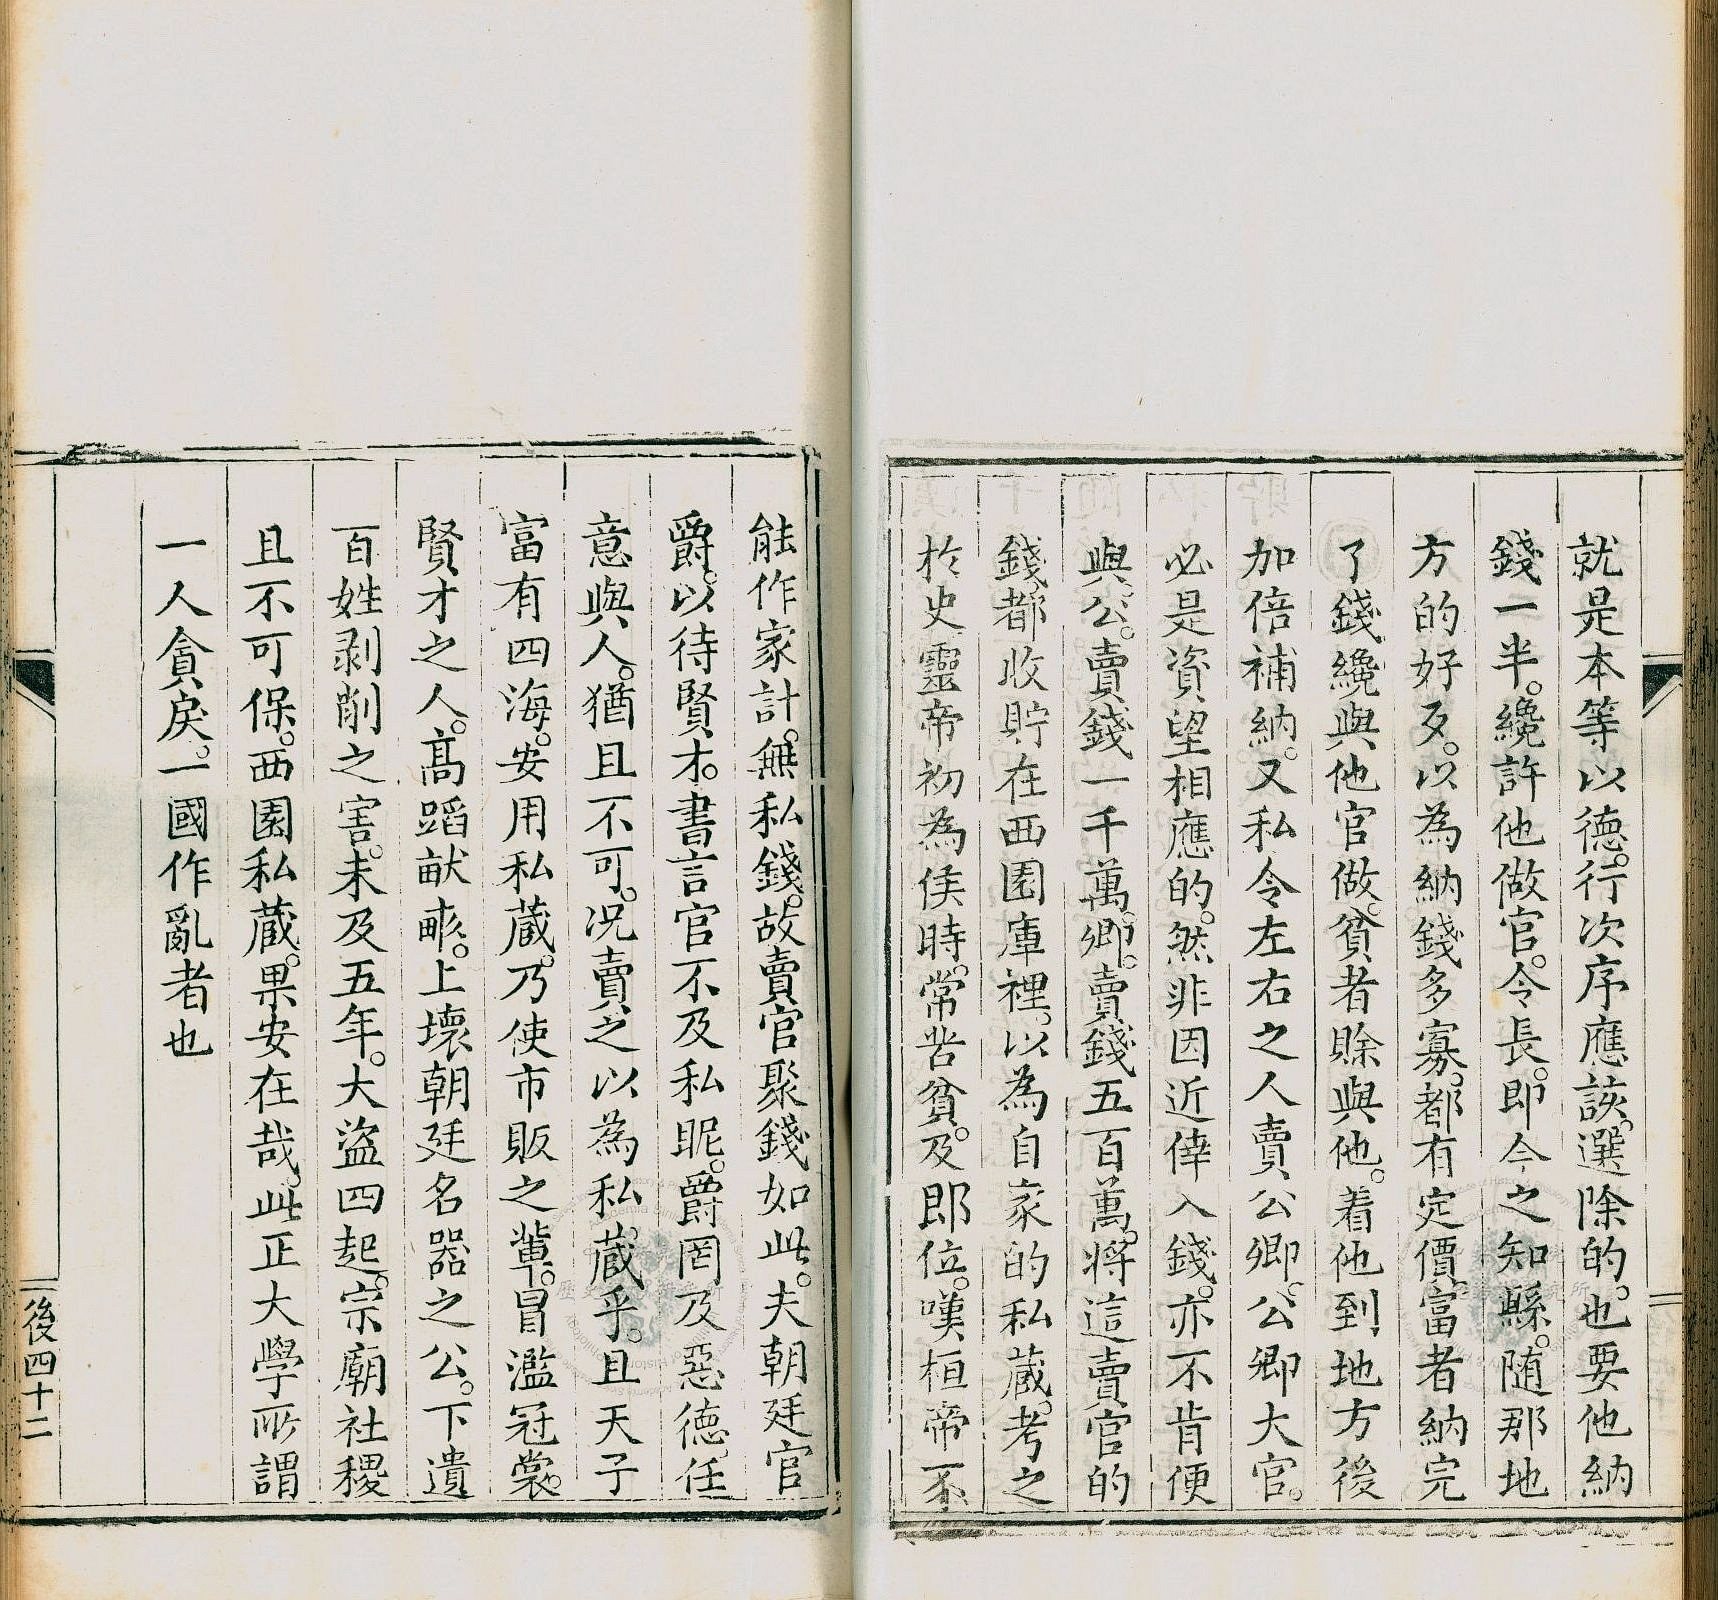 就是本等以德。行次序應該。選除的。也要他納
錢一半。纔許他做官。令長。即今之知縣。随那地
方的好歹。以為納錢多寡。都有定價。富者納完
了錢纔與他官做。貧者賒與他。着他到地方後
加倍補納。又私令左右之人賣公卿。公卿大官。
必是資望相應的。然非因近倖入錢。亦不肯便
與。公。賣錢一千萬。卿。賣錢五百萬。將這賣官的
錢都收貯在西園庫裡。以為自家的私蔵。考之
於史靈帝初為侯時。常苦貧。及即位。嘆桓帝不
能作家計。無私錢。故賣官聚錢如此。夫朝廷官
爵。以待賢才。書言官不及私昵。爵罔及惡德。任
意與人。猶且不可。况賣之以為私。蔵乎。且天子
富有四海。安用私蔵。乃使市販之輩。冒濫冠裳。
賢才之人。髙蹈献畝。上壞朝廷名器之公。下遺
百姓剥削之害。未及五年。大盜四起。宗廟社稷
且不可保。西園私蔵。果安在哉。此正大學所謂
一人貪戾。一國作亂者也
後四十二